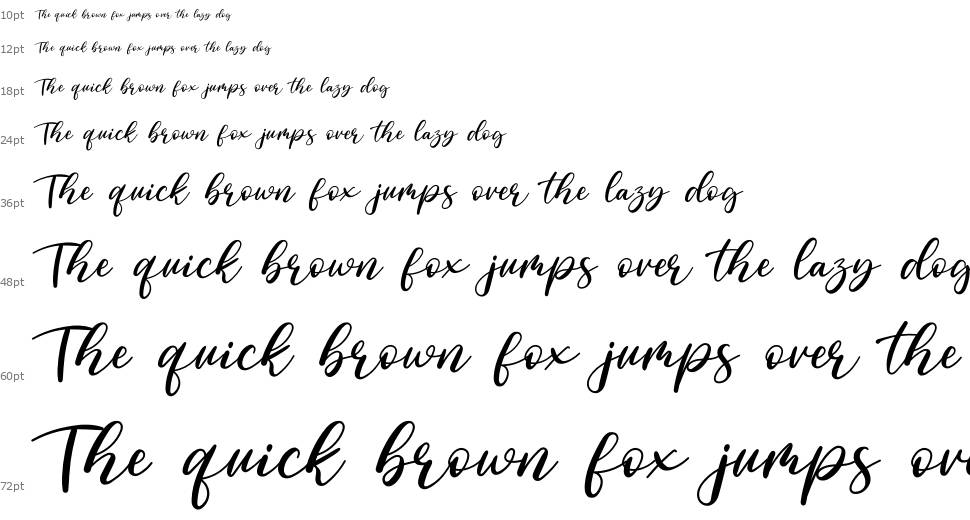 10pt The quick brown fox jumps over the lazy dog
12pt The quick brown fox jumps over the lazy dog
18pt The quick brown fox jumps over the lazy dog
24pt The quick brown fox jumps over the lazy dog
36pt The quick brown fox jumps over the lazy dog
48pt The quick brown fox jumps over the lazy dog
60pt The quick brown fox jumps over the
72pt The quick brown fox jumps